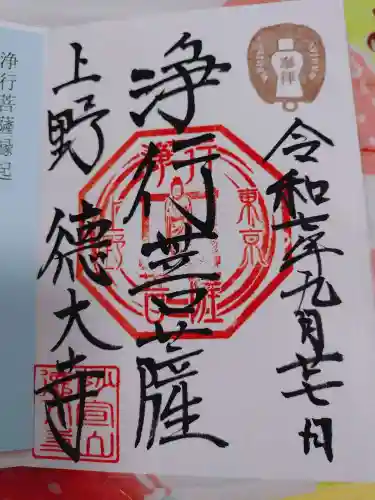 奉拝
令和七年九月廿七日
浄行菩薩
上野 徳大寺
浄行
東京
上野
菩薩
浄行菩薩縁起